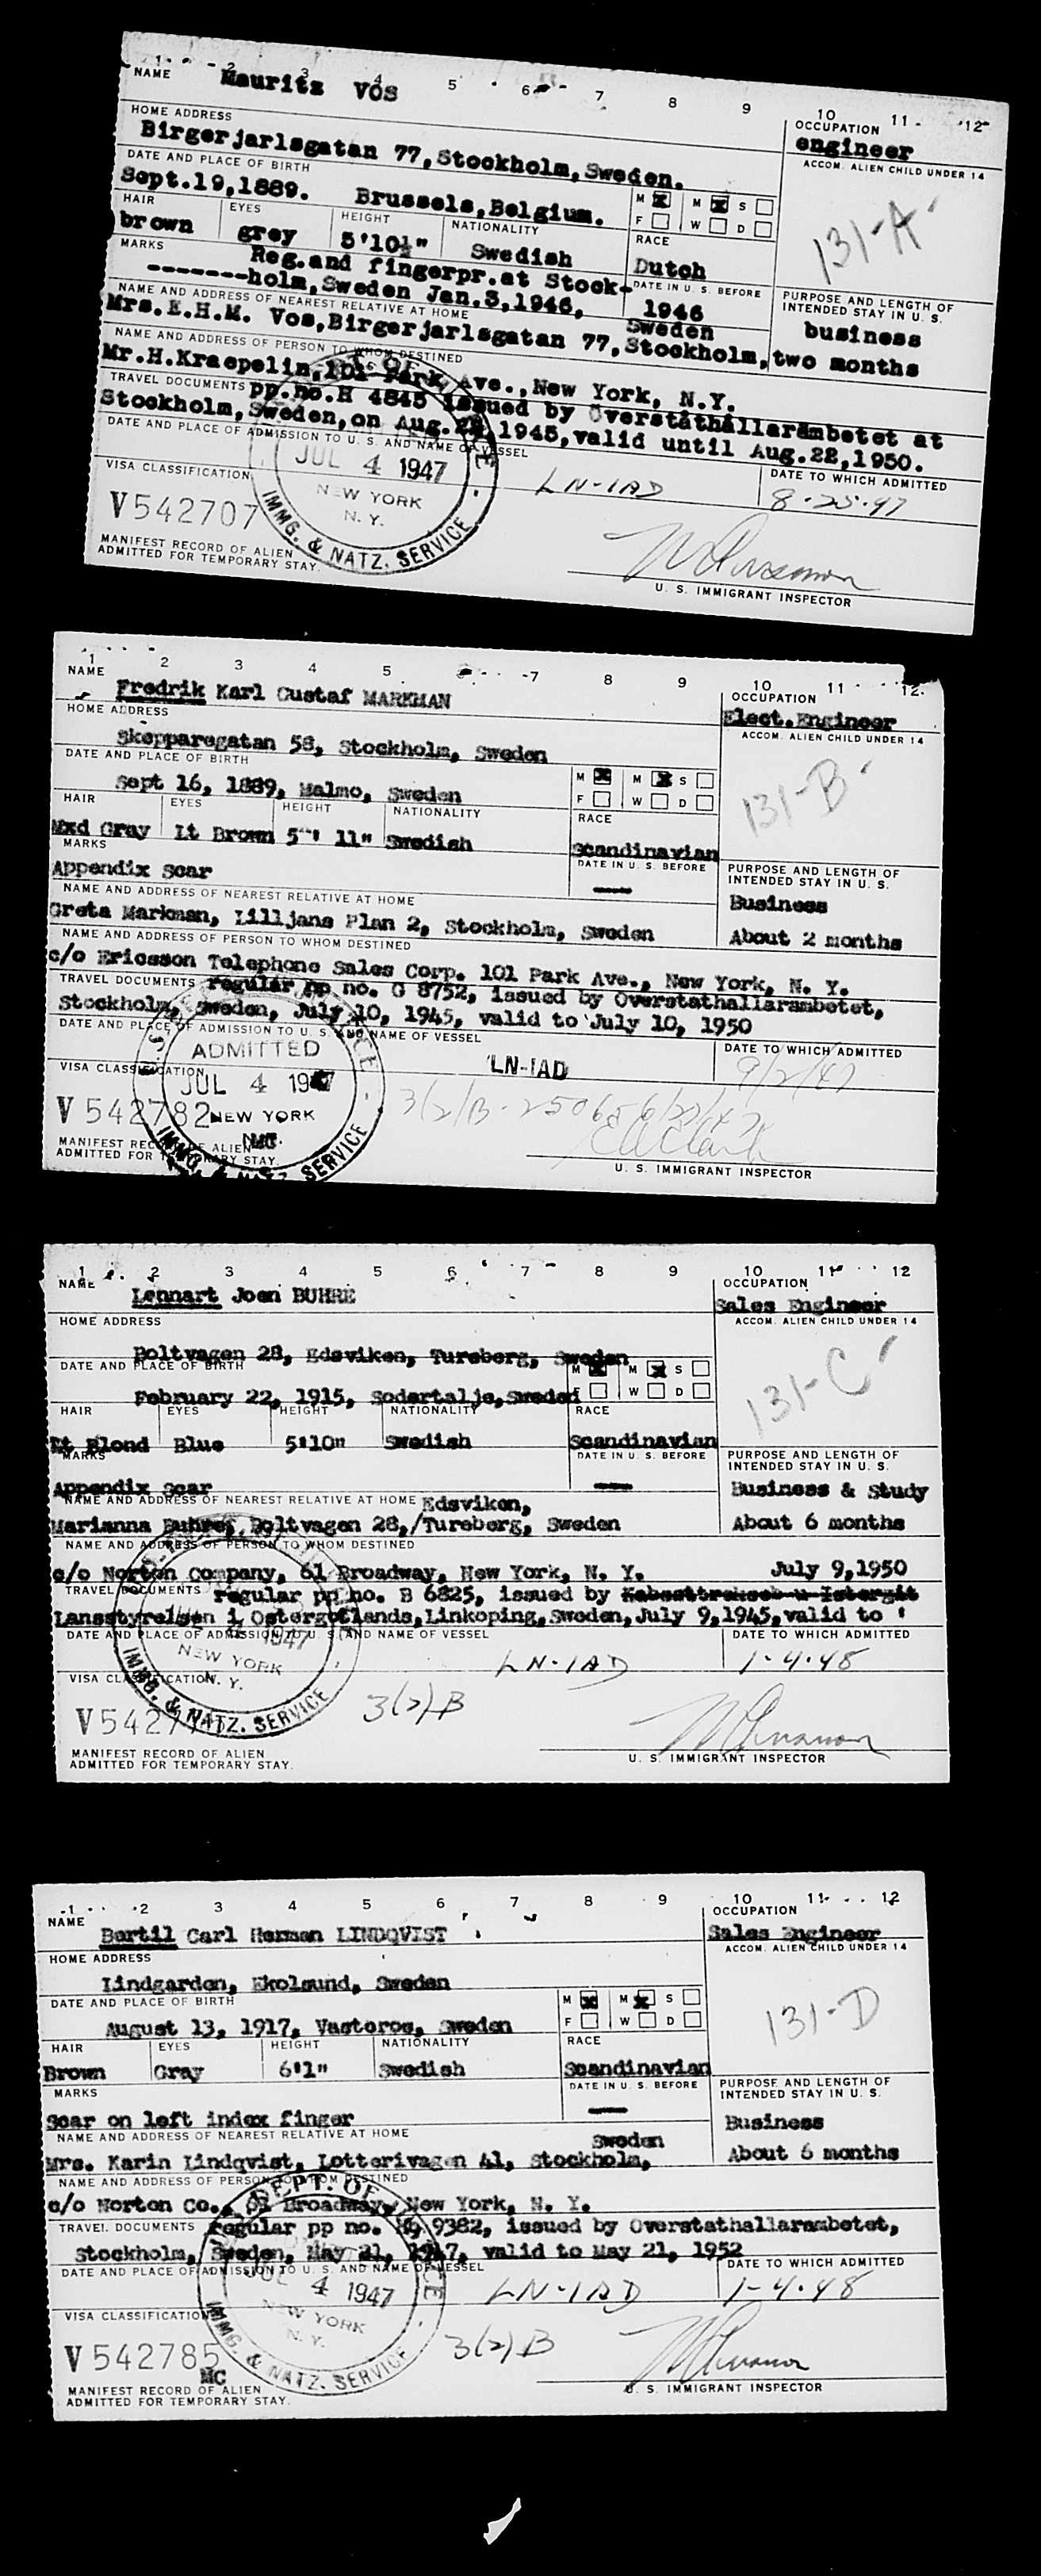 1 2 3 4 5 6 7 8 9 10 11 12
NAME Mauritz VOS
OCCUPATION engineer
HOME ADDRESS
Birgerjarlsgatan 77, Stockholm, Sweden.
ACCOM. ALIEN CHILD UNDER 14
131-A
DATE AND PLACE OF BIRTH
Sept.19,1889. Brussels, Belgium.
M X F M X S W D
HAIR EYES HEIGHT NATIONALITY RACE
brown grey 5'10½" Swedish Dutch
MARKS Reg.and fingerpr.at Stock-
-------holm, Sweden Jan.3,1946,
DATE IN U. S. BEFORE
1946
PURPOSE AND LENGTH OF
INTENDED STAY IN U. S.
business
two months
NAME AND ADDRESS OF NEAREST RELATIVE AT HOME
Sweden
Mrs.E.H.M. Vos, Birgerjarlsgatan 77, Stockholm,
NAME AND ADDRESS OF PERSON TO WHOM DESTINED
Mr.H.Kraepelin, 101 Park Ave., New York, N.Y.
TRAVEL DOCUMENTS pp.no.H 4845 issued by Överståthållarämbetet at
Stockholm, Sweden, on Aug.22,1945, valid until Aug.22,1950.
DATE AND PLACE OF ADMISSION TO U. S. AND NAME OF VESSEL
JUL 4 1947
NEW YORK
N. Y.
IMMG. & NATZ. SERVICE
LN-IAD
DATE TO WHICH ADMITTED
8-25-47
VISA CLASSIFICATION
V542707
MANIFEST RECORD OF ALIEN
ADMITTED FOR TEMPORARY STAY.
U. S. IMMIGRANT INSPECTOR
1 2 3 4 5 6 7 8 9 10 11 12
NAME Fredrik Karl Gustaf MARKMAN
OCCUPATION
Elect. Engineer
HOME ADDRESS
Skepparegatan 58, Stockholm, Sweden
ACCOM. ALIEN CHILD UNDER 14
131-B
DATE AND PLACE OF BIRTH
Sept 16, 1889, Malmo, Sweden
M X F M X S W D
HAIR EYES HEIGHT NATIONALITY RACE
Mxd Gray Lt Brown 5' 11" Swedish Scandinavian
MARKS
Appendix Scar
DATE IN U. S. BEFORE
PURPOSE AND LENGTH OF
INTENDED STAY IN U. S.
Business
About 2 months
NAME AND ADDRESS OF NEAREST RELATIVE AT HOME
Greta Markman, Lilljans Plan 2, Stockholm, Sweden
NAME AND ADDRESS OF PERSON TO WHOM DESTINED
c/o Ericsson Telephone Sales Corp. 101 Park Ave., New York, N. Y.
TRAVEL DOCUMENTS regular pp no. G 8752, issued by Overstathallarambetet,
Stockholm, Sweden, July 10, 1945, valid to July 10, 1950
DATE AND PLACE OF ADMISSION TO U. S. AND NAME OF VESSEL
ADMITTED
JUL 4 1947
NEW YORK
IMMG. & NATZ. SERVICE
LN-IAD
DATE TO WHICH ADMITTED
9/2/47
VISA CLASSIFICATION
V 542782
MANIFEST RECORD OF ALIEN
ADMITTED FOR TEMPORARY STAY.
U. S. IMMIGRANT INSPECTOR
1 2 3 4 5 6 7 8 9 10 11 12
NAME Lennart Joen BUHRE
OCCUPATION
Sales Engineer
HOME ADDRESS
Boltvagen 28, Edsviken, Tureberg, Sweden
ACCOM. ALIEN CHILD UNDER 14
131-C
DATE AND PLACE OF BIRTH
February 22, 1915, Sodertalje, Sweden
M X F M X S W D
HAIR EYES HEIGHT NATIONALITY RACE
Lt Blond Blue 5'10" Swedish Scandinavian
MARKS
Appendix Scar
DATE IN U. S. BEFORE
PURPOSE AND LENGTH OF
INTENDED STAY IN U. S.
Business & Study
About 6 months
NAME AND ADDRESS OF NEAREST RELATIVE AT HOME Edsviken,
Marianna Buhre, Boltvagen 28,/Tureberg, Sweden
NAME AND ADDRESS OF PERSON TO WHOM DESTINED
c/o Norton Company, 61 Broadway, New York, N. Y. July 9,1950
TRAVEL DOCUMENTS regular pp no. B 6825, issued by
Lansstyrelsen i Ostergotlands, Linkoping, Sweden, July 9,1945, valid to
DATE AND PLACE OF ADMISSION TO U. S. AND NAME OF VESSEL
1947
NEW YORK
N. Y.
IMMG. & NATZ. SERVICE
LN-IAD
DATE TO WHICH ADMITTED
1-4-48
VISA CLASSIFICATION
3(2)B
MANIFEST RECORD OF ALIEN
ADMITTED FOR TEMPORARY STAY.
U. S. IMMIGRANT INSPECTOR
1 2 3 4 5 6 7 8 9 10 11 12
NAME
Bertil Carl Herman LINDQVIST
OCCUPATION
Sales Engineer
HOME ADDRESS
Lindgarden, Ekolsund, Sweden
ACCOM. ALIEN CHILD UNDER 14
131-D
DATE AND PLACE OF BIRTH
August 13, 1917, Vasteros, Sweden
M X F M X S W D
HAIR EYES HEIGHT NATIONALITY RACE
Brown Gray 6'1" Swedish Scandinavian
MARKS
Scar on left index finger
DATE IN U. S. BEFORE
PURPOSE AND LENGTH OF
INTENDED STAY IN U. S.
Business
About 6 months
NAME AND ADDRESS OF NEAREST RELATIVE AT HOME
Sweden
Mrs. Karin Lindqvist, Lotterivagen 41, Stockholm,
NAME AND ADDRESS OF PERSON TO WHOM DESTINED
c/o Norton Co., 61 Broadway, New York, N. Y.
TRAVEL DOCUMENTS regular pp no. 9382, issued by Overstathallarambetet,
Stockholm, Sweden, May 21, 1947, valid to May 21, 1952
DATE AND PLACE OF ADMISSION TO U. S. AND NAME OF VESSEL
DEPT. OF
JUL 4 1947
NEW YORK
N. Y.
IMMG. & NATZ. SERVICE
LN-IAD
DATE TO WHICH ADMITTED
1-4-48
VISA CLASSIFICATION
V 542785
MC
3(2)B
MANIFEST RECORD OF ALIEN
ADMITTED FOR TEMPORARY STAY.
U. S. IMMIGRANT INSPECTOR